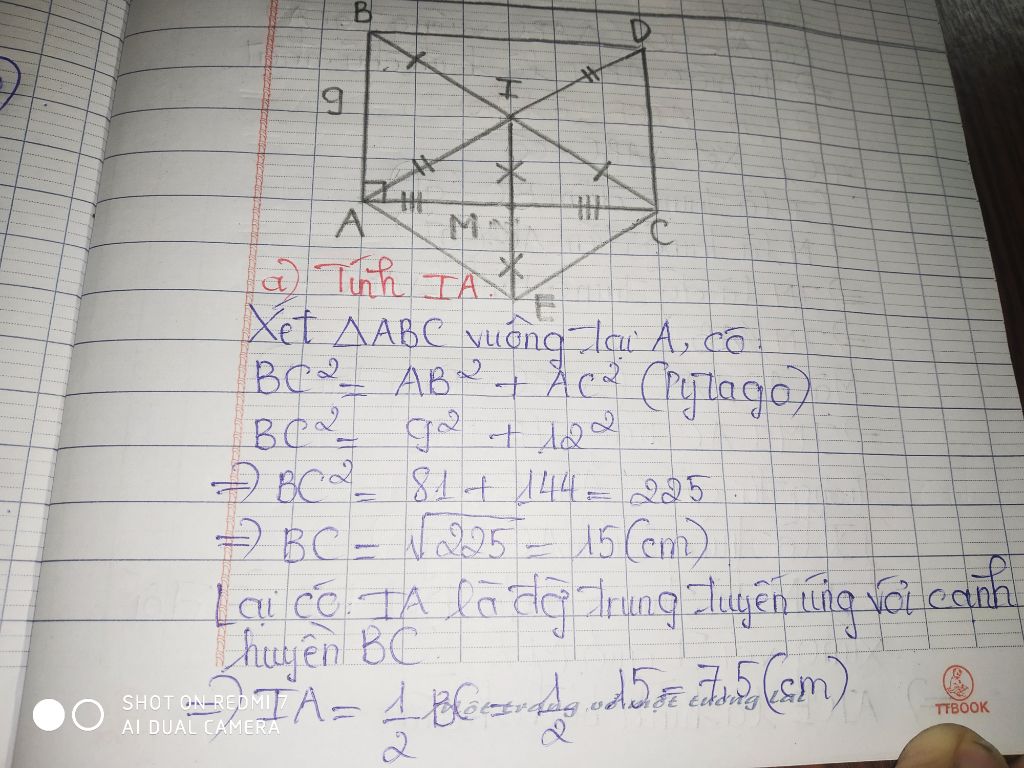 B
D
9
I
A
M
C
E
a) Tính IA.
Xét △ABC vuông tại A, có:
BC² = AB² + AC² (Pytago)
BC² = 9² + 12²
=> BC² = 81 + 144 = 225
=> BC = √225 = 15 (cm)
Lại có: IA là đg̀ trung tuyến ứng với cạnh
huyền BC
=> IA = 1/2 BC = 1/2 . 15 = 7,5 (cm)
SHOT ON REDMI 7
AI DUAL CAMERA
TTBOOK